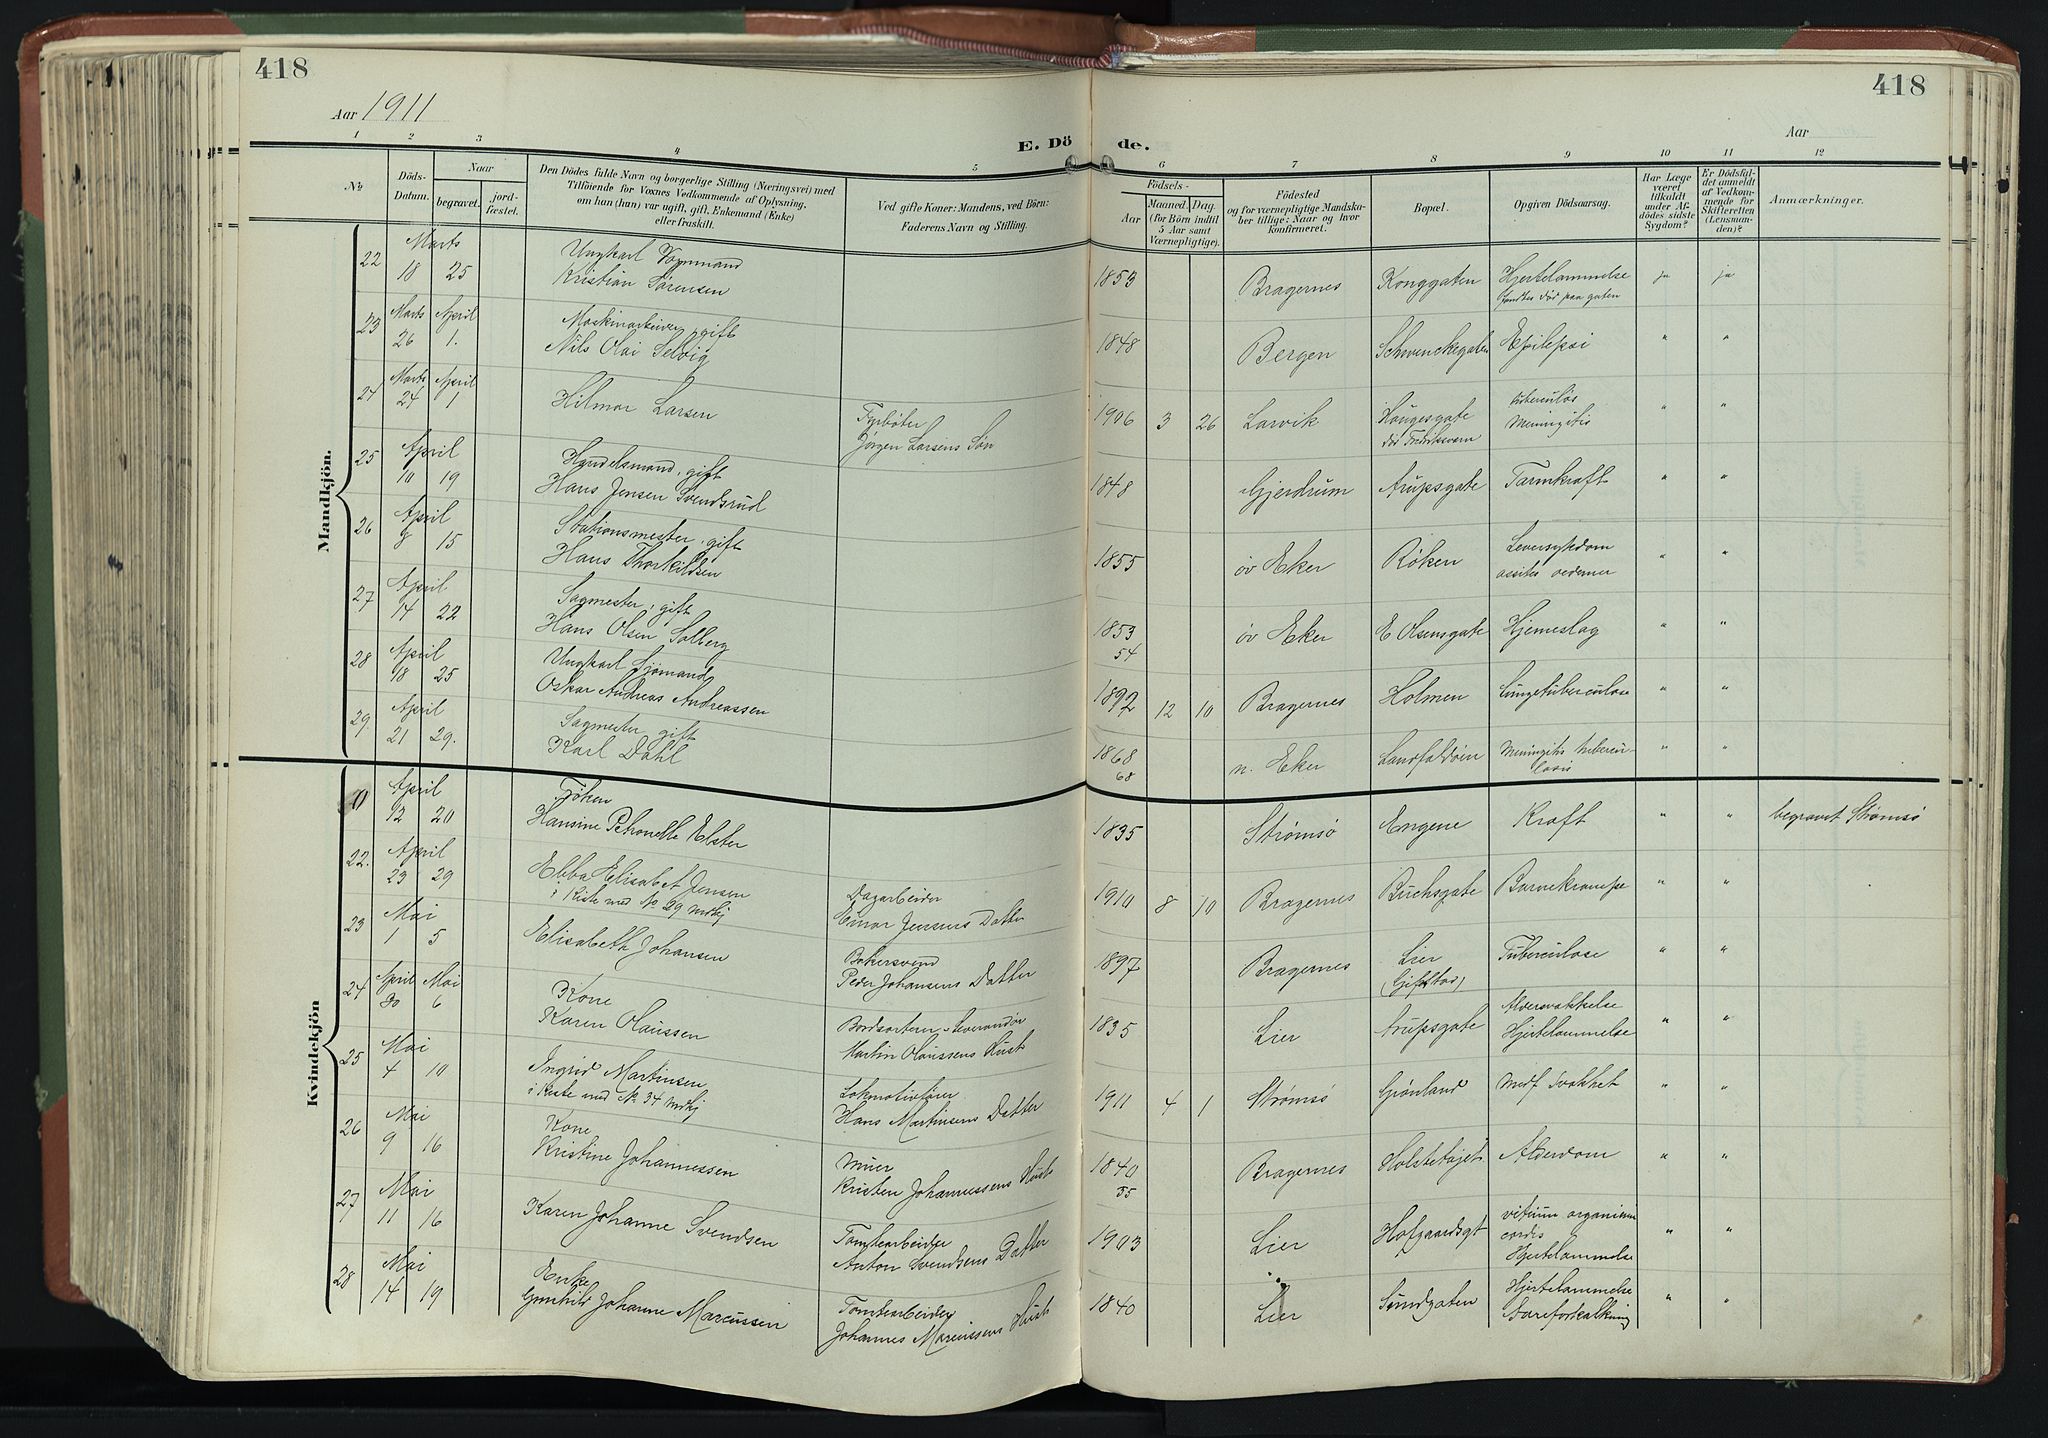 418
418
Aar 1911
Aar
E. Dö de.
1 2 3 4 5 6 7 8 9 10 11 12
№
Döds-Datum.
Naar
begravet.
jord-fæstet.
Den Dödes fulde Navn og borgerlige Stilling (Næringsvei) med
Tilföiende for Voxnes Vedkommende af Oplysning,
om han (hun) var ugift, gift, Enkemand (Enke)
eller fraskilt.
Ved gifte Koner: Mandens, ved Börn:
Faderens Navn og Stilling.
Födsels-
Aar
Maaned. Dag.
(for Börn indtil
5 Aar samt
Værnepligtige).
Födested
og for værnepligtige Mandska-
ber tillige: Naar og hvor
konfirmeret.
Bopæl.
Opgiven Dödsaarsag.
Har Læge
været
tilkaldt
under Af-
dödes sidste
Sygdom?
Er Dödsfal-
det anmeldt
af Vedkom-
mende for
Skifteretten
(Lensman-
den)?
Anmærkninger.
Mandkjön.
22 Marts 18 25 Ungkarl Vognmand
Kristian Sørensen 1853 Bragernes Konggaten Hjertelammelse ja ja
fandtes død paa gaten
23 Marts 26 April 1. Maskinarbeider, gift
Nils Olai Selvig 1848 Bergen Schwenckegaten Epilepsi " "
24 Marts 24 April 1 Hilmar Larsen Fyrbøter
Jørgen Larsens Søn 1906 3 26 Larvik Haugesgate
død Fredriksvern tuberculøs
Meningitis " "
25 April 10 19 Handelsmand, gift
Hans Jensen Svendsrud 1848 Gjerdrum Arupsgate Tarmkraft " "
26 April 8 15 Stationsmester, gift
Hans Thorkildsen 1855 øv Eker Røken Leversykdom
assites oedemer " "
27 April 14 22 Sagmester, gift
Hans Olsen Solberg 1853
54 øv Eker E Olsensgate Hjerneslag " "
28 April 18 25 Ungkarl Sjømand
Oskar Andreas Andreassen 1892 12 10 Bragernes Holmen Lungetuberculose " "
29. April 21 29. Sagmester gift
Karl Dahl 1868
68 n. Eker Landfaldøen Meningitis tubercu-
losis " "
Kvindekjön
0 April 12 20 Frøken
Hansine Petronelle Elster 1835 Strømsø Engene Kraft " " begravet Strømsø
22. April 23 29 Ebba Elisabet Jensen
i Kiste med No 29 mdkj Dagarbeider
Einar Jensens Datter 1910 8 10 Bragernes Buchsgate Barnekrampe " "
23 Mai 1 5 Elisabeth Johansen Bakersvend
Peder Johansens Datter 1897 Bragernes Lier
Tuberculose " "
24 April 30 Mai 6 Kone
Karen Olaussen Bordsorterer
Martin Olaussens Hust 1835 Lier Arupsgate Aldersvakkelse
Hjertelammelse " "
25 Mai 4 10 Ingrid Martinsen
i Kiste med No 34 mdkj Lokmotivfører
Hans Martinsens Datter 1911 4 1 Strømsø Grønland Medf Svakhet " "
26 Mai 9 16 Kone
Kristine Johannessen Murer
Kristen Johannessens Hust 1840
35 Bragernes Holstetøjet Alderdom " "
27 Mai 11 16 Karen Johanne Svendsen Tomtearbeider
Anton Svendsens Datter 1903 Lier Hofgaardsgt vitium organicum
cordis
Hjertelammelse " "
28 Mai 14 19 Enke
Gunhild Johanne Marcussen Tomtearbeider
Johannes Marcussens Hust 1840 Lier Sundgaten Hjertelammelse
Aareforkalkning " "